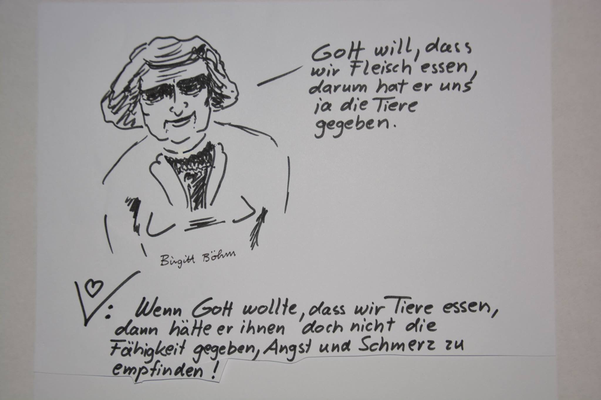 Gott will, dass
wir Fleisch essen,
darum hat er uns
ja die Tiere
gegeben.
Birgitt Böhm
V: Wenn Gott wollte, dass wir Tiere essen,
dann hätte er ihnen doch nicht die
Fähigkeit gegeben, Angst und Schmerz zu
empfinden!